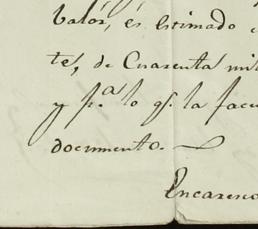 valor, es estimado
te, de Cuarenta mil
y p.ª lo q.e la facu
documento.
Encarenc